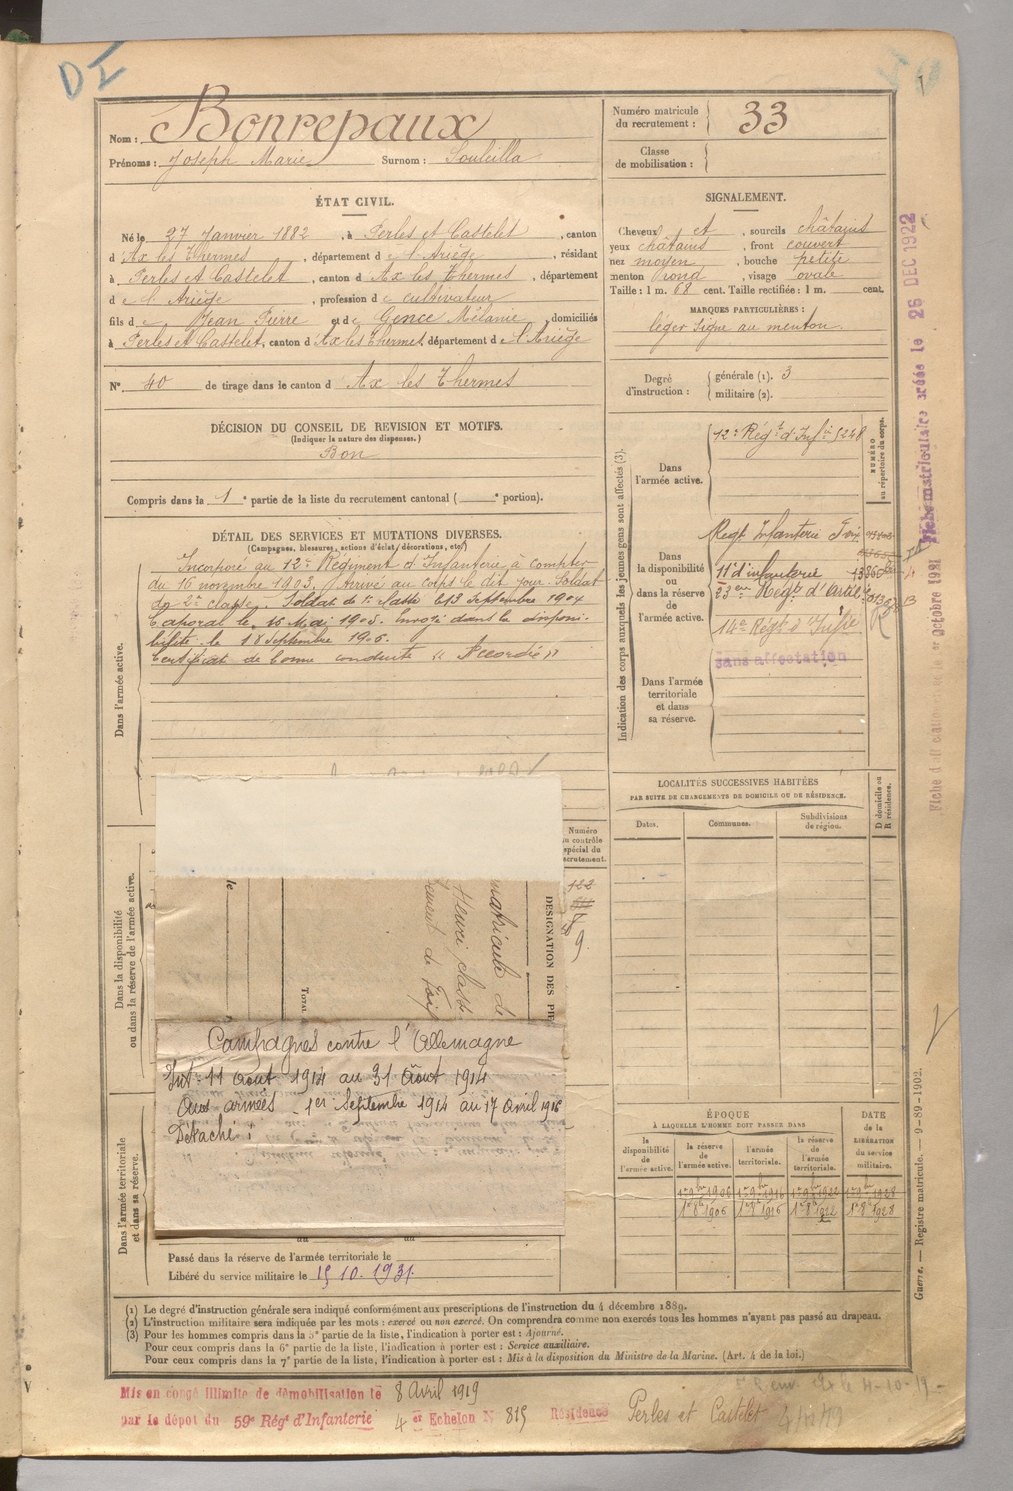 D I
Nom : Bonrepaux
Prénoms : Joseph Marie Surnom : Souleilla
Numéro matricule du recrutement : 33
Classe de mobilisation :
ÉTAT CIVIL.
Né le 27 Janvier 1882, à Perles et Castelet, canton
d'Ax les Thermes, département de l'Ariège, résidant
à Perles et Castelet, canton d'Ax les Thermes, département
de l'Ariège, profession de cultivateur
fils de Jean Pierre et de Gence Mélanie, domiciliés
à Perles et Castelet, canton d'Ax les Thermes, département de l'Ariège
N° 40 de tirage dans le canton d'Ax les Thermes
SIGNALEMENT.
Cheveux et, sourcils châtains
yeux châtains, front couvert
nez moyen, bouche petite
menton rond, visage ovale
Taille : 1 m. 68 cent. Taille rectifiée : 1 m. cent.
MARQUES PARTICULIÈRES :
léger signe au menton.
Degré d'instruction : générale (1). 3
militaire (2).
DÉCISION DU CONSEIL DE REVISION ET MOTIFS.
(Indiquer la nature des dispenses.)
Bon
Compris dans la 1e partie de la liste du recrutement cantonal ( e portion).
DÉTAIL DES SERVICES ET MUTATIONS DIVERSES.
(Campagnes, blessures, actions d'éclat, décorations, etc.)
Dans l'armée active.
Incorporé au 12e Régiment d'Infanterie à compter
du 16 novembre 1903. Arrivé au corps le dit jour. Soldat
de 2e classe. Soldat de 1e classe le 13 Septembre 1904
Caporal le 16 Mai 1905. Envoyé dans la disponi-
bilité le 18 Septembre 1906.
Certificat de bonne conduite « Accordé »
Indication des corps auxquels les jeunes gens sont affectés (3).
NUMÉRO au répertoire du corps.
Dans l'armée active.
12e Régt d'Infie 5248
Dans la disponibilité ou dans la réserve de l'armée active.
Regt Infanterie Foix
11e d'infanterie
23eme Régt d'Artie
14e Régt d'Infie
sans affectation
Dans l'armée territoriale et dans sa réserve.
Fiche matriculaire créée le 26 DEC 1922
LOCALITÉS SUCCESSIVES HABITÉES
PAR SUITE DE CHANGEMENTS DE DOMICILE OU DE RÉSIDENCE.
Dates. Communes. Subdivisions de région. D domicile ou R résidence.
Dans la disponibilité ou dans la réserve de l'armée active.
Numéro au contrôle spécial du recrutement.
122
9.
le
TOTAL
matricule de
Henri classe
DESIGNATION DES PIE
Campagnes contre l'Allemagne
Int : 11 Août 1914 au 31 Août 1914
Aux armées - 1er Septembre 1914 au 17 Avril 1916
Détaché :
Dans l'armée territoriale et dans sa réserve.
au au
Passé dans la réserve de l'armée territoriale le
Libéré du service militaire le 15.10.1931
ÉPOQUE
À LAQUELLE L'HOMME DOIT PASSER DANS
la disponibilité de l'armée active. la réserve de l'armée active. l'armée territoriale. la réserve de l'armée territoriale.
DATE de la LIBÉRATION du service militaire.
1er 9bre 1906 1er 9bre 1916 1er 9bre 1922 1er 9bre 1928
1er 8bre 1906 1er 8bre 1916 1er 8bre 1922 1er 8bre 1928
Guerre. — Registre matricule. — 9-89-1902.
(1) Le degré d'instruction générale sera indiqué conformément aux prescriptions de l'instruction du 4 décembre 1889.
(2) L'instruction militaire sera indiquée par les mots : exercé ou non exercé. On comprendra comme non exercés tous les hommes n'ayant pas passé au drapeau.
(3) Pour les hommes compris dans la 5e partie de la liste, l'indication à porter est : Ajourné.
Pour ceux compris dans la 6e partie de la liste, l'indication à porter est : Service auxiliaire.
Pour ceux compris dans la 7e partie de la liste, l'indication à porter est : Mis à la disposition du Ministre de la Marine. (Art. 4 de la loi.)
Mis en congé illimité de démobilisation le 8 Avril 1919
par le dépôt du 59e Régt d'Infanterie 4er Echelon N° 815 Résidence Perles et Castelet